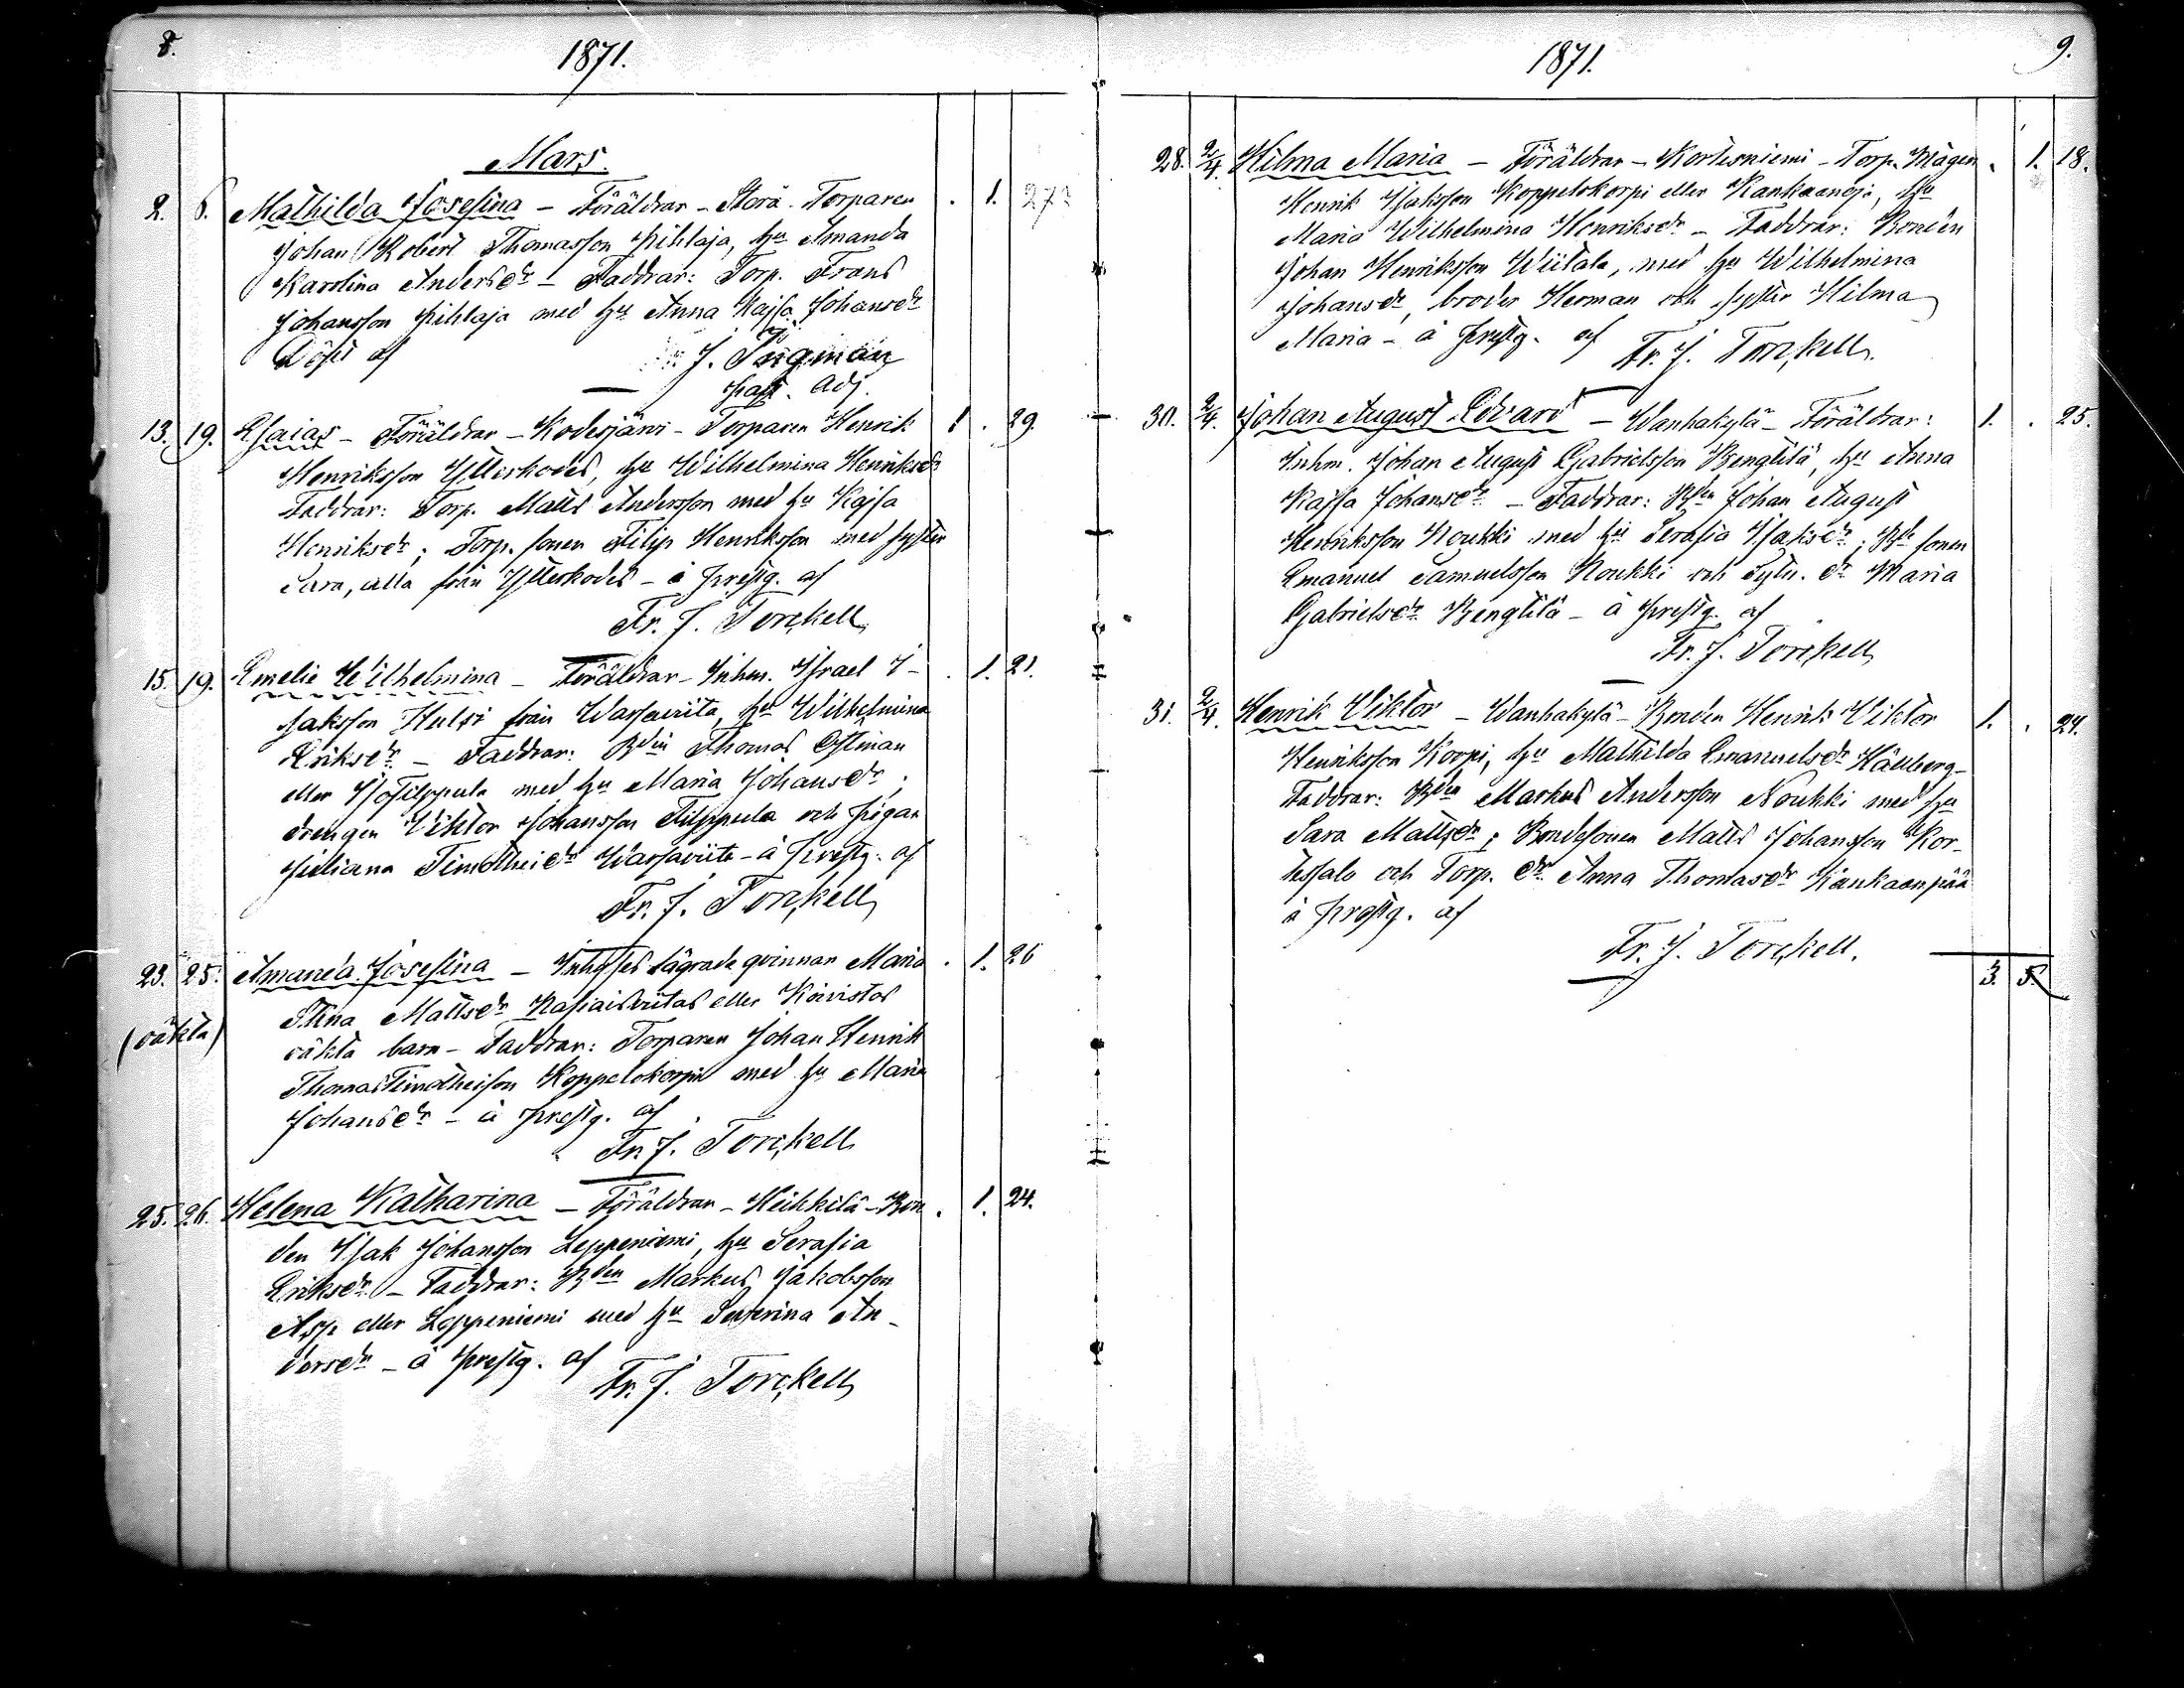 8.
1871.
Mars.
2. 6. Mathilda Josefina – Föräldrar – Storå – Torparen . 1. 27
Johan Robert Thomasson Pihlaja, hu Amanda
Karolina Andersdr – Faddrar: Torp. Frans
Johansson Pihlaja med hu Anna Kajsa Johansdr
Döpt af J.
Past. Adj.
13. 19. Esaias – Föräldrar – Kodesjärvi – Torparen Henrik 1 . 29.
Henriksson Ytterkodes, hu Wilhelmina Henriksdr
Faddrar: Torp. Matts Andersson med hu Kajsa
Henriksdr; Torp. sonen Filip Henriksson med syster
Sara, alla från Ytterkodes – å prestg. af
Fr. J. Torckell
15. 19. Emelie Wilhelmina – Föräldrar – Inhm. Israel I- . 1. 21.
saksson Hulsi från Warsaviita, hu Wilhelmina
Eriksdr – Faddrar: Bdn Thomas Östman
eller Isofilppula med hu Maria Johansdr;
drengen Viktor Johansson Filppula och pigan
Juliana Timotheidr Warsaviita – å prestg. af
Fr. J. Torckell
23. 25. Amanda Josefina – Inhyses lägrade qvinnan Maria . 1. 26
(oäkta)
Stina Mattsdr Rahiaisviitas eller Koivistos
oäkta barn – Faddrar: Torparen Johan Henrik
Thomas Timotheison Koppelokorpi med hu Maria
Johansdr – å prestg. af
Fr. J. Torckell
25. 26. Helena Katharina – Föräldrar – Heikkilä – Bon . 1. 24.
den Isak Johansson Leppeniemi, hu Serafia
Eriksdr – Faddrar: Bden Markus Jakobsson
Asp eller Leppeniemi med hu Severina An-
dersdr – å prestg. af
Fr. J. Torckell
1871.
9.
28. 2/4. Hilma Maria – Föräldrar – Kortesniemi – Torp. Mågen . 1. 18.
Henrik Isaksson Koppelokorpi eller Kankaanoja, hu
Maria Wilhelmina Henriksdr – Faddrar: Bonden
Johan Henriksson Wiitala, med hu Wilhelmina
Johansdr, broder Herman och syster Hilma
Maria – å prestg. af
Fr. J. Torckell.
30. 2/4. Johan August Edvard – Wanhakylä – Föräldrar: 1. . 25.
Inhm. Johan August Gabrielsson Bengtilä, hu Anna
Kajsa Johansdr – Faddrar: Bden Johan August
Henriksson Noukki med hu Serafia Isaksdr; Bde sonen
Emanuel Samuelsson Noukki och Sytn. dr Maria
Gabrielsdr Bengtilä – å prestg. af
Fr. J. Torckell
31. 2/4. Henrik Viktor – Wanhakylä – Bonden Henrik Viktor 1. . 24.
Henriksson Korpi, hu Mathilda Emanuelsdr Hällberg –
Faddrar: Bden Markus Andersson Noukki med hu
Sara Mattsdr; Bondesonen Matts Johansson Kor-
tessalo och Torp. dr Anna Thomasdr Kankaanpää
å prestg. af
Fr. J. Torckell.
3. 5.